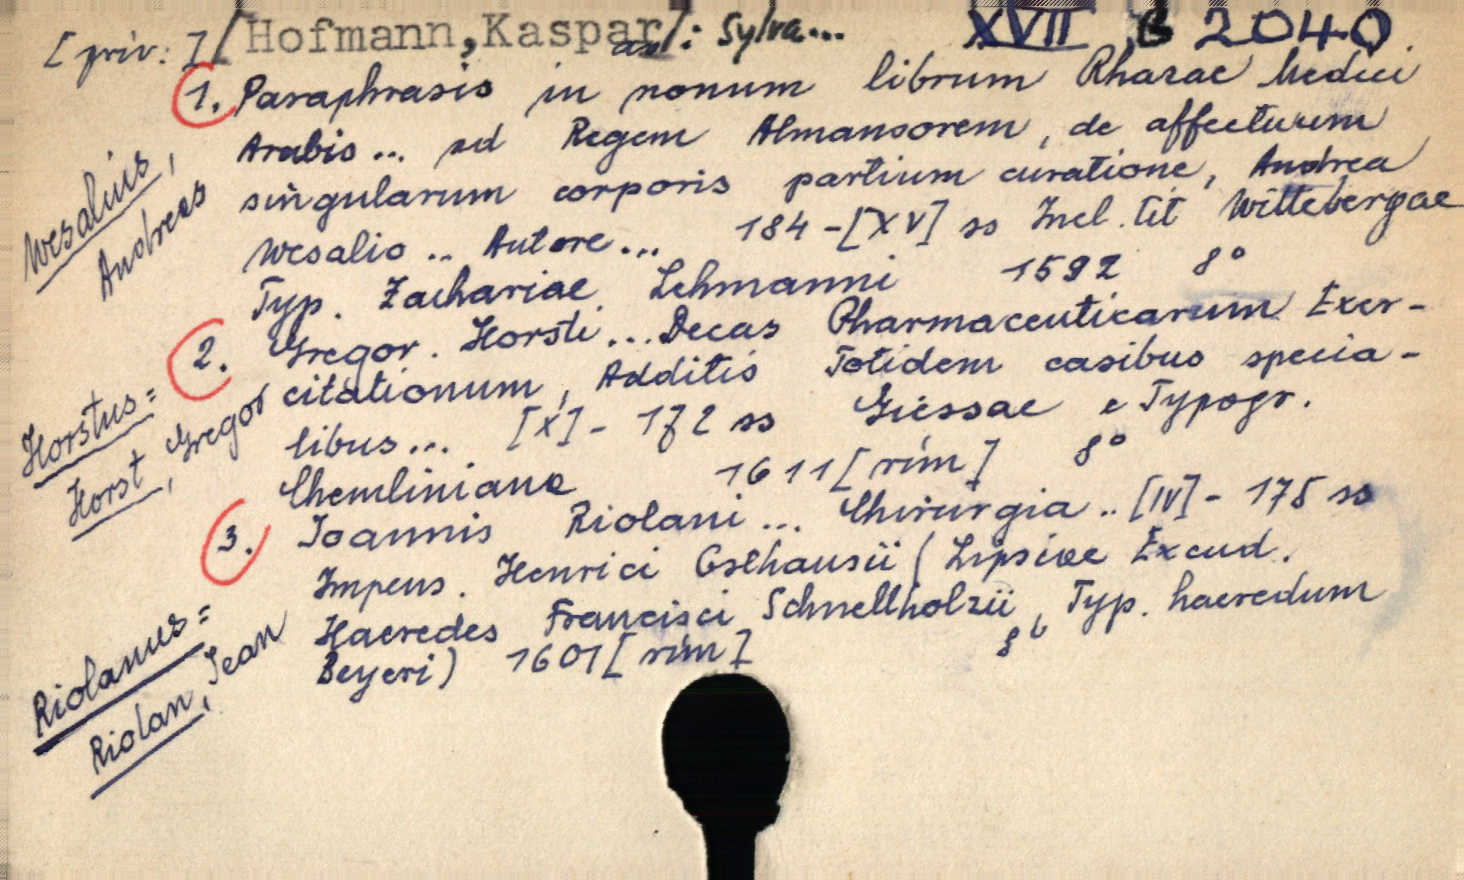 [priv:] / Hofmann, Kaspar / : Sylva... XVII B 2040
1. Paraphrasis in nonum librum Rhazae Medici
Arabis .. ad Regem Almansorem, de affectuum
singularum corporis partium curatione, Andrea
Wesalio .. Autore... 184 - [XV] ss Incl. tit Wittebergae
Typ. Zachariae Lehmanni 1592 8°
Wesalius,
Andreas
2. Gregor. Horsti... Decas Pharmaceuticarum Exer-
citationum, Additis Totidem casibus specia-
libus... [X] - 172 ss Giessae e Typogr.
Chemliniana 1611 [rím] 8°
Horstus =
Horst, Gregor
3. Ioannis Riolani... Chirurgia .. [IV] - 175 ss
Impens. Henrici Osthausii (Lipsiae Excud.
Haeredes Francisci Schnellholzii, Typ. haeredum
Beyeri) 1601 [rím] 8°
Riolanus =
Riolan, Jean